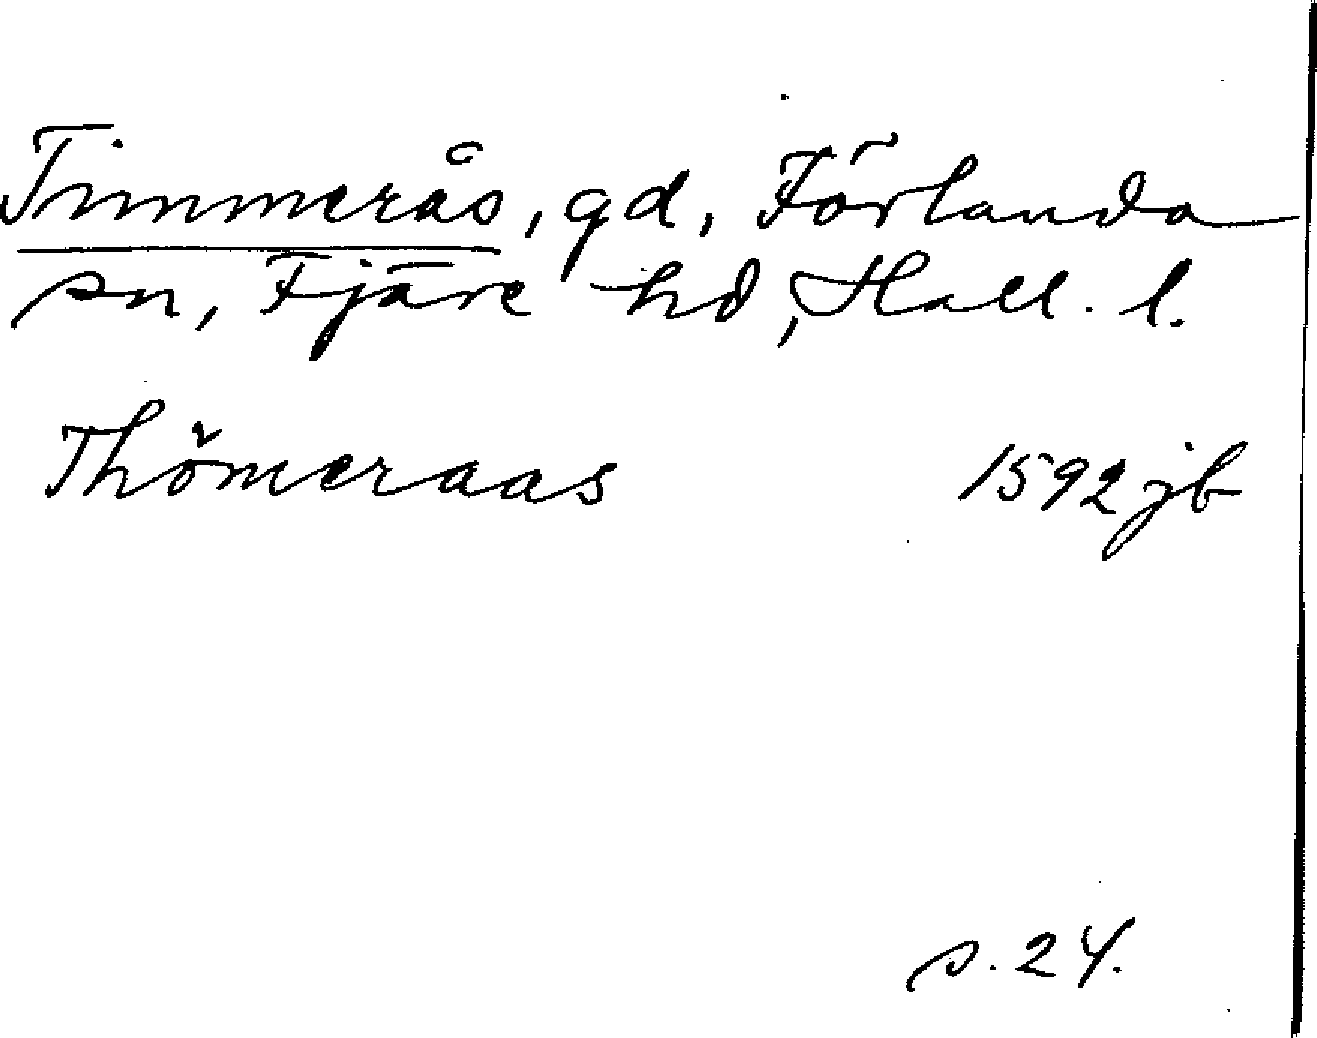 Timmerås, gd, Förlanda
sn, Fjäre hd, Hall. l.
Thömeraas 1592 jb
s. 24.